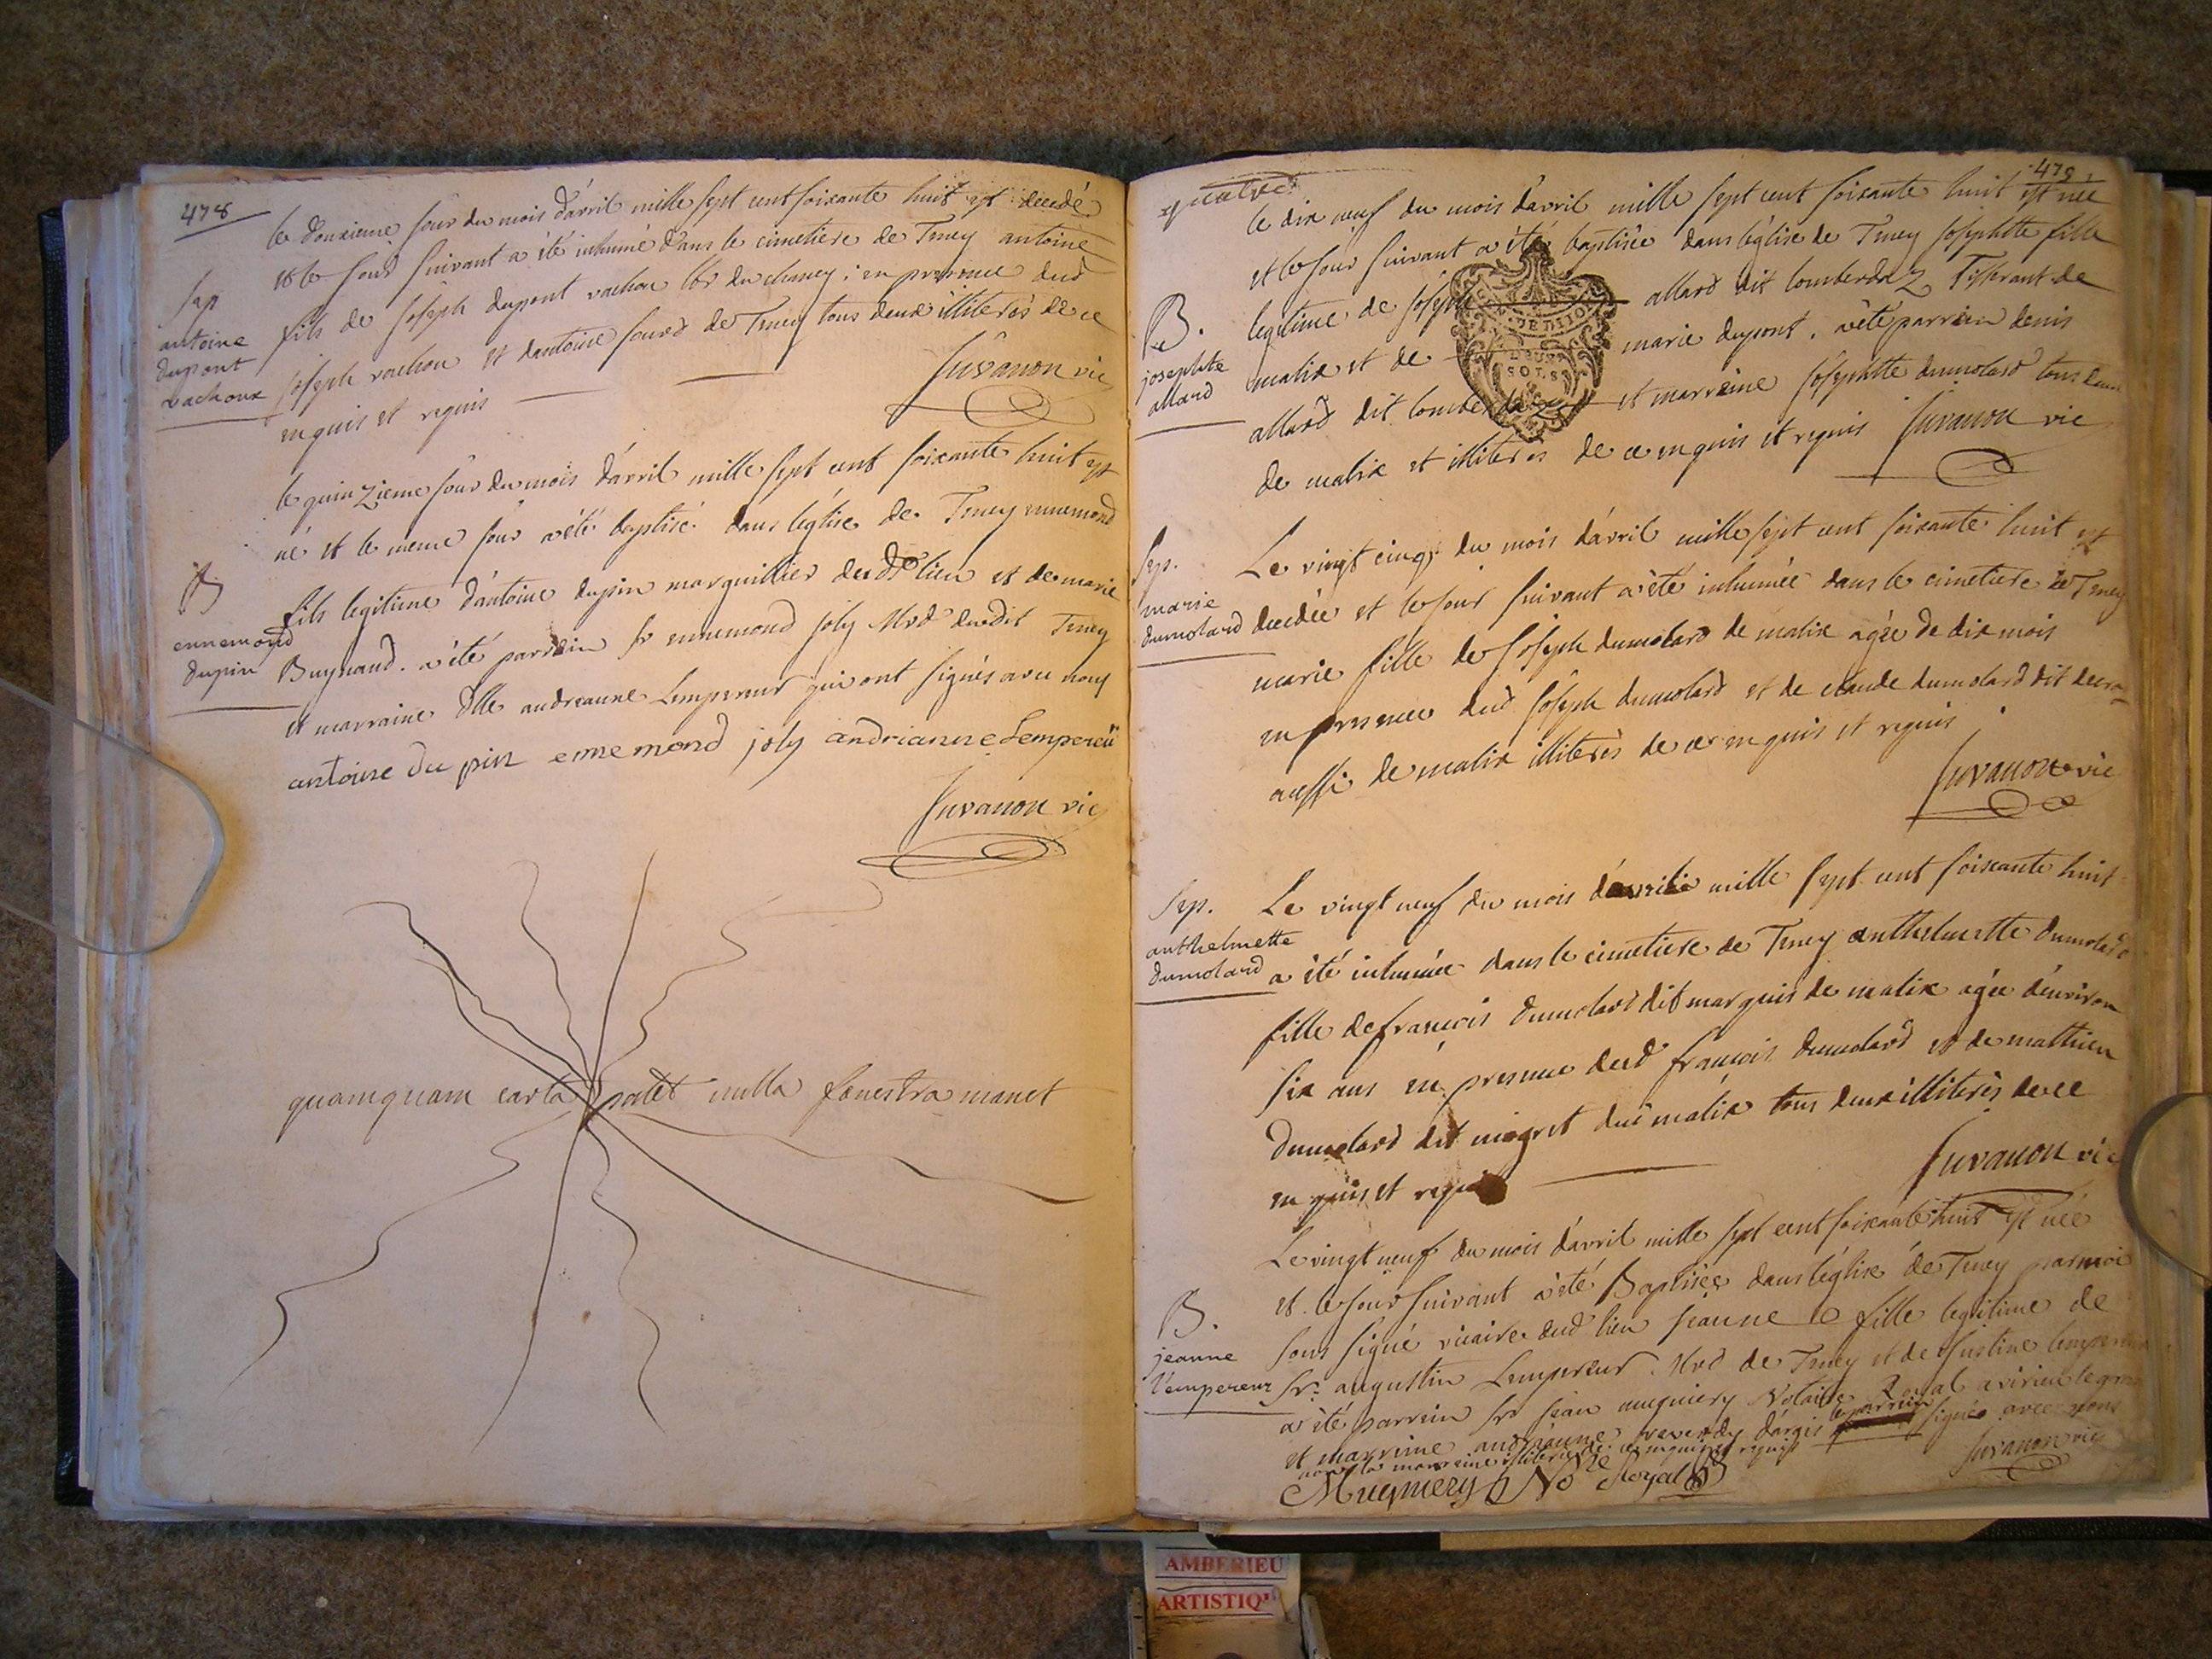 478
le douzieme jour du mois d'avril mille sept cent soixante huit est decedé
et le jour suivant a été inhumé dans le cimetiere de Teney antoine
fils de joseph dupont vachou lbr du chaney; en presence dud
joseph vachou et d'antoine jourd de Teney tous deux illiterés de ce
enquis et requis
Juvanon vic
Sep
antoine
dupont
vachoux
le quinzieme jour du mois d'avril mille sept cent soixante huit est
né et le meme jour a été baptisé dans l'église de Teney ennemond
fils legitime d'antoine dupin marguillier dud lieu et de marie
Buynand. a été parrein sr ennemond joly Mrd dudit Teney
et marraine dlle andreanne Lempereur qui ont signés avec nous
antoine du pin ennemond joly andrianne Lempereu
Juvanon vic
B
ennemond
dupin
quamquam carta patet nulla fenestra manet
479
quatre
le dix neuf du mois d'avril mille sept cent soixante huit est née
et le jour suivant a été baptisée dans l'église de Teney josephtte fille
legitime de joseph allard dit lomberdaz Tisserant de
malix et de marie dupont, a été parrein denis
allard dit lomberdaz et marreine josephtte dumolard tous deux
de malix et illiterés de ce enquis et requis Juvanon vic
B.
josephte
allard
DE DIJON
SOLS
Le vingt cinq du mois d'avril mille sept cent soixante huit est
decedée et le jour suivant a été inhumée dans le cimetiere de Teney
marie fille de joseph dumolard de malix agée de dix mois
en presence dud joseph dumolard et de claude dumolard dit
aussi de malix illiterés de ce enquis et requis
Juvanon vic
Sep.
marie
dumolard
Le vingt neuf du mois d'avril mille sept cent soixante huit
a été inhumée dans le cimetiere de Teney anthelmette dumolard
fille de francois dumolard dit marquis de malix agée d'environ
six ans en presence dud francois dumolard et de mathieu
dumolard dit de malix tous deux illiterés de ce
enquis et requis
Juvanon vic
Sep.
anthelmette
dumolard
Le vingt neuf du mois d'avril mille sept cent soixante huit est née
et le jour suivant a été Baptisée dans l'église de Teney par moi
sous signé vicaire dud lieu jeanne fille legitime de
Sr. augustin Lempereur Mrd de Teney et de justine lempereur
a été parrein sr jean mugniery Notaire Royal a virieu le grand
et marreine andrianne reverdy d'argis le parrein signé avec nous
non la marreine illiterée de ce enquise et requise
Mugniery No re Royal
Juvanon vic
B.
jeanne
l'empereur
AMBERIEU
ARTISTIQ